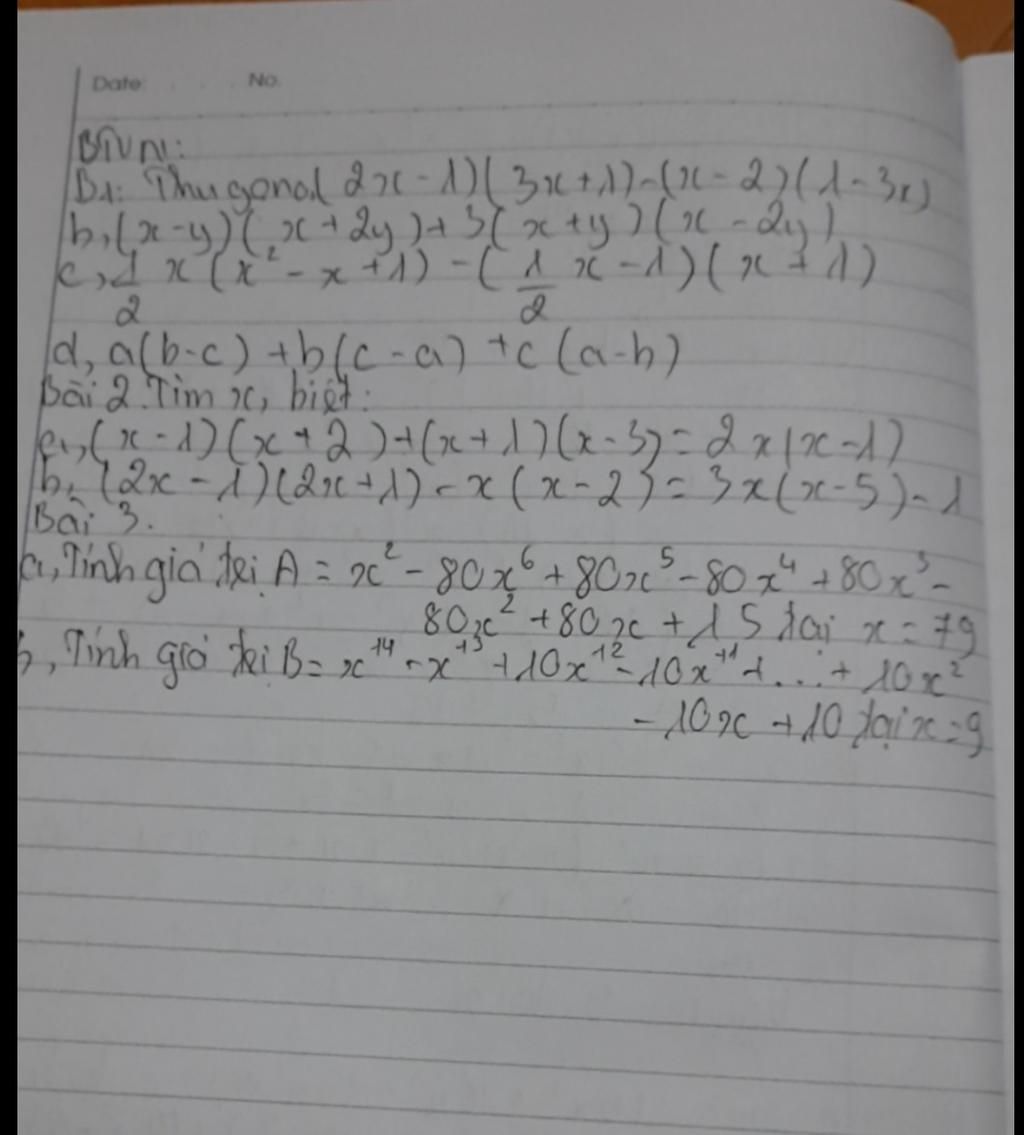 Date: No.
BTVN:
B1: Thu gọn a,(2x-1)(3x+1)-(x-2)(1-3x)
b,(x-y)(x+2y)+3(x+y)(x-2y)
c, 1/2 x(x²-x+1)-(1/2 x-1)(x+1)
d, a(b-c)+b(c-a)+c(a-b)
Bài 2. Tìm x, biết:
a,(x-1)(x+2)+(x+1)(x-3)=2x(x-1)
b,(2x-1)(2x+1)-x(x-2)=3x(x-5)-1
Bài 3.
a, Tính giá trị A = x² - 80x⁶ + 80x⁵ - 80x⁴ + 80x³ -
80x² + 80x + 15 tại x = 79
b, Tính giá trị B = x¹⁴ - x¹³ + 10x¹² - 10x¹¹ + ... + 10x²
- 10x + 10 tại x = 9